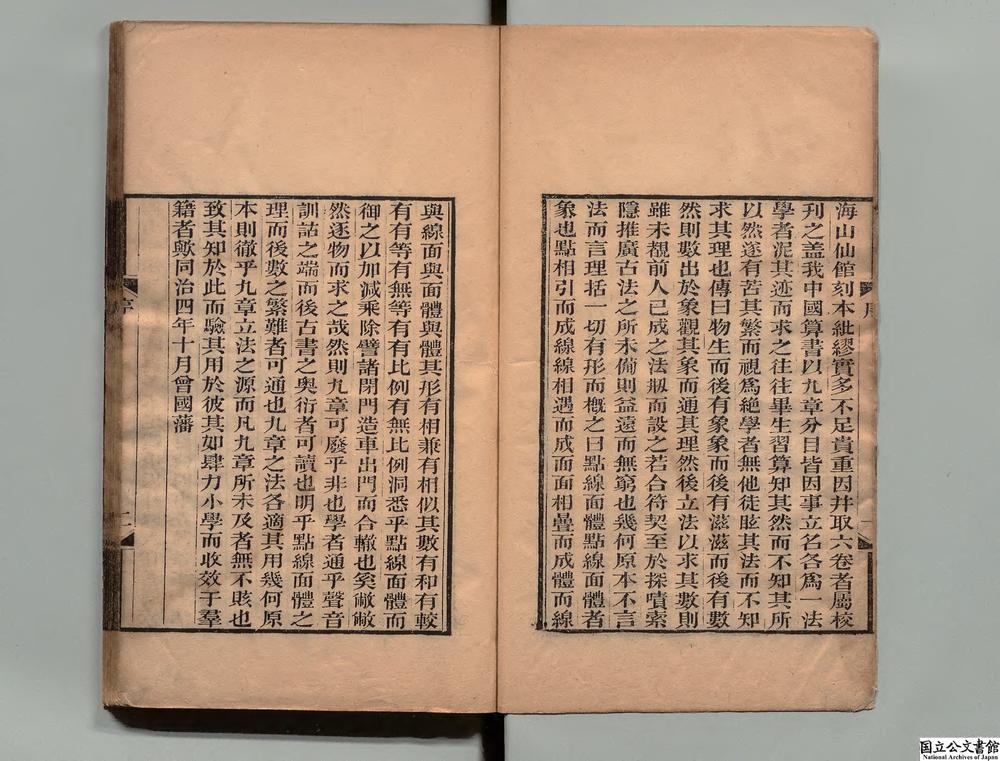 海山仙館刻本紕繆實多不足貴重因并取六卷者屬校
刋之盖我中國算書以九章分目皆因事立名各爲一法
學者泥其迹而求之往往畢生習算知其然而不知其所
以然遂有苦其繁而視爲絶學者無他徒眩其法而不知
求其理也傳曰物生而後有象象而後有滋滋而後有數
然則數出於象觀其象而通其理然後立法以求其數則
雖未覩前人已成之法剏而設之若合符契至於探嘖索
隱推廣古法之所未備則益遠而無窮也幾何原本不言
法而言理括一切有形而槪之曰點線面體點線面體者
象也點相引而成線線相遇而成面面相疊而成體而線
與線面與面體與體其形有相兼有相似其數有和有較
有有等有無等有有比例有無比例洞悉乎點線面體而
御之以加減乘除譬諸閉門造車出門而合轍也奚敝敝
然逐物而求之哉然則九章可廢乎非也學者通乎聲音
訓詁之端而後古書之奥衍者可讀也明乎點線面體之
理而後數之繁難者可通也九章之法各適其用幾何原
本則徹乎九章立法之源而凡九章所未及者無不賅也
致其知於此而驗其用於彼其如肆力小學而收效于羣
籍者歟同治四年十月曾國藩
序
二
国立公文書館
National Archives of Japan